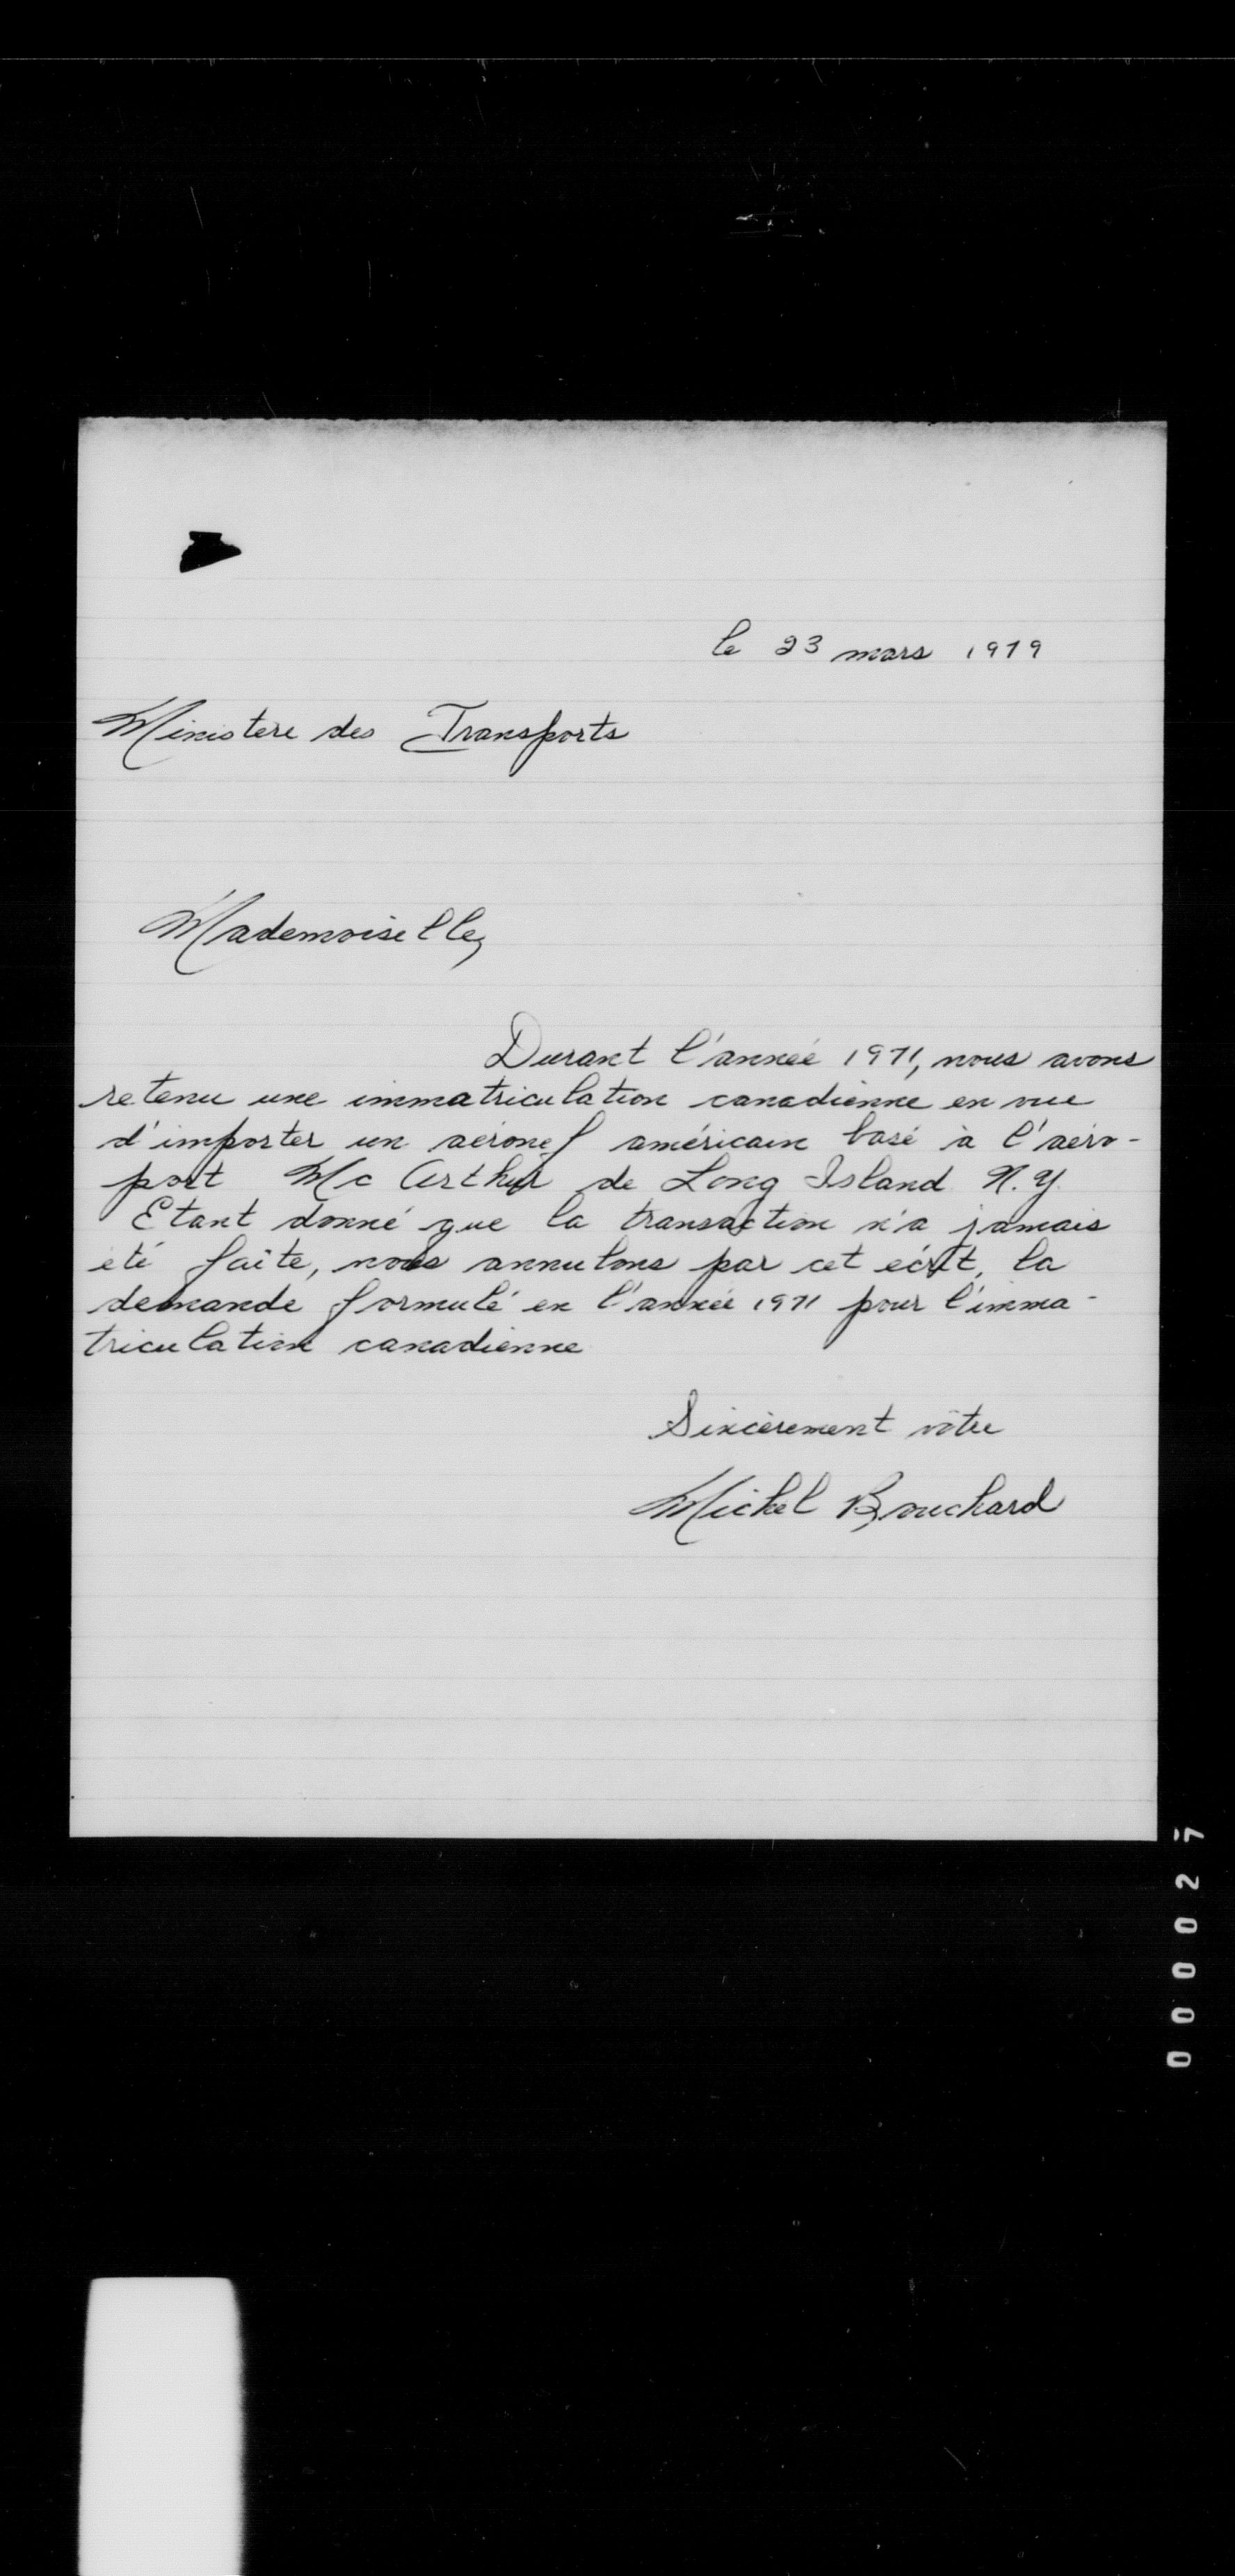 le 23 mars 1979
Ministère des Transports
Mademoiselle,
Durant l'année 1971, nous avons
retenu une immatriculation canadienne en vue
d'importer un aéronef américain basé à l'aéro-
port Mc Arthur de Long Island N.Y.
Etant donné que la transaction n'a jamais
été faite, nous annulons par cet écrit, la
demande formulé en l'année 1971 pour l'imma-
triculation canadienne
Sincèrement vôtre
Michel Bouchard
000027